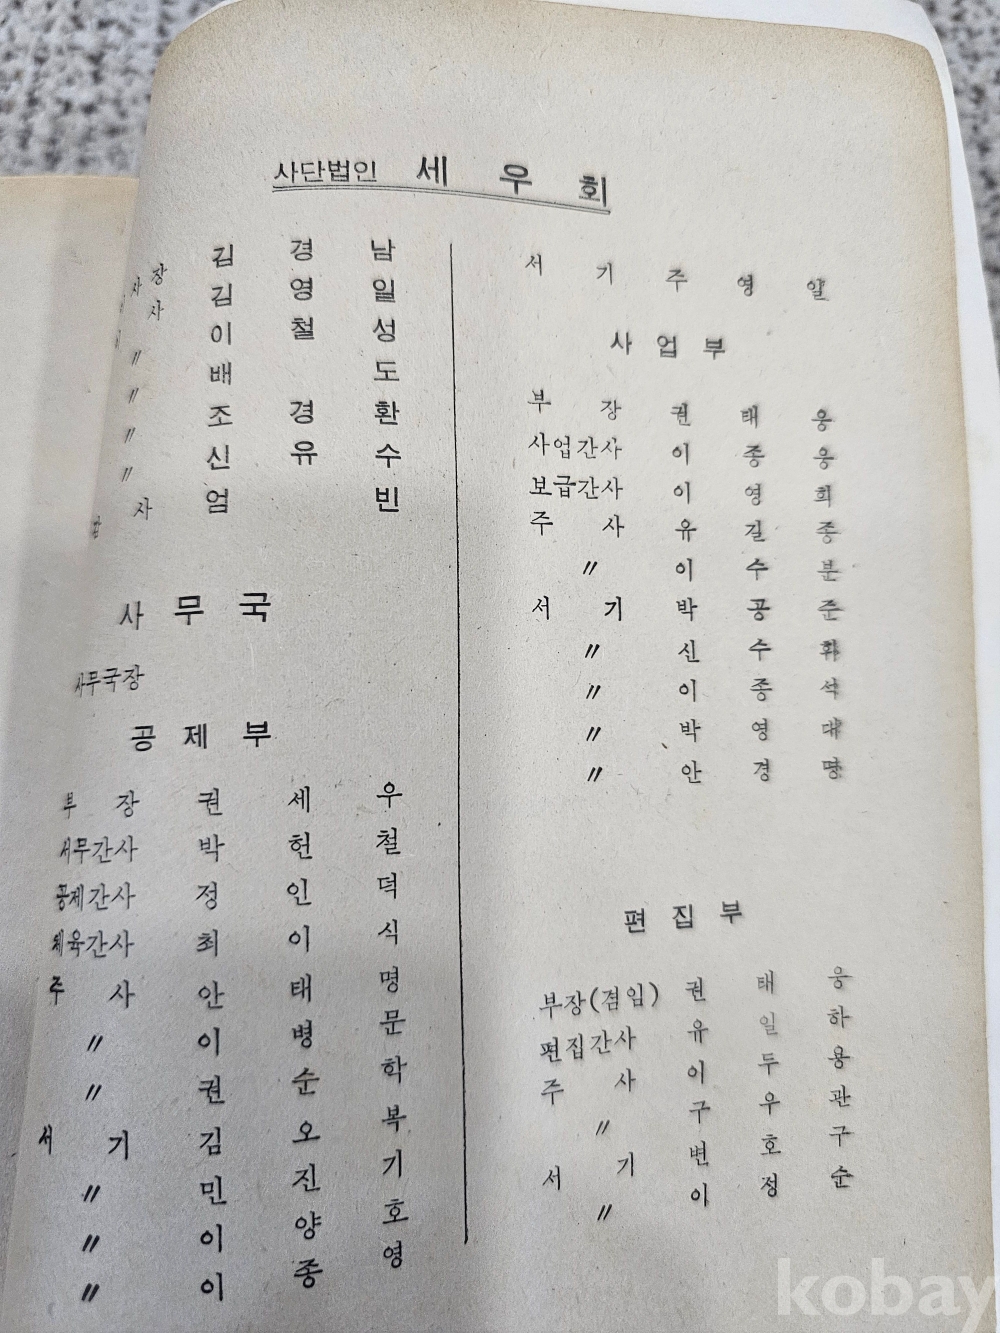 사단법인 세 우 회
장 김 경 남
사 김 영 일
〃 이 철 성
〃 배 도
〃 조 경 환
〃 신 유 수
사 엄 빈
사 무 국
사무국장
공 제 부
부 장 권 세 우
서무간사 박 헌 철
공제간사 정 인 덕
체육간사 최 이 식
주 사 안 태 명
〃 이 병 문
〃 권 순 학
서 기 김 오 복
〃 민 진 기
〃 이 양 호
〃 이 종 영
서 기 주 영 일
사 업 부
부 장 권 태 웅
사업간사 이 종 웅
보급간사 이 영 희
주 사 유 길 종
〃 이 수 분
서 기 박 공 준
〃 신 수 화
〃 이 종 석
〃 박 영 대
〃 안 경 명
편 집 부
부장(겸임) 권 태 웅
편집간사 유 일 하
주 사 이 두 용
〃 구 우 관
서 기 변 호 구
〃 이 정 순
kobay